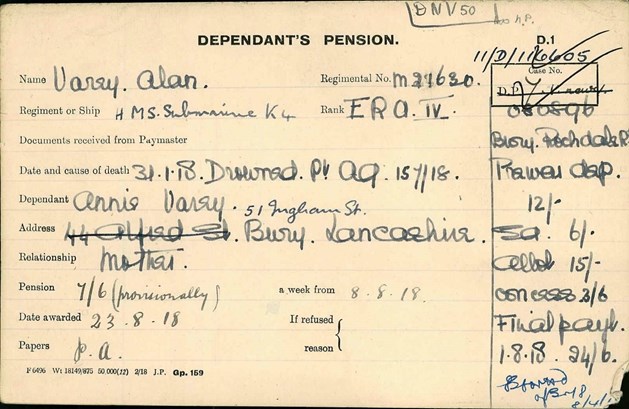 DNV 50
DEPENDANT'S PENSION.
D.1
11/D/116605
Name Varey. Alan.
Regimental No. M21630.
Case No.
Regiment or Ship HMS. Submarine K4
Rank E R A. IV.
Documents received from Paymaster
Bury. Rochdale
Date and cause of death 31.1.18. Drowned. 15/7/18.
Prewar dep.
Dependant Annie Varey.
12/-
51 Ingham St.
Address 44 Alfred St. Bury. Lancashire.
6/-
Relationship Mother.
Allot 15/-
Pension 7/6 (provisionally) a week from 8.8.18.
concess 3/6
Date awarded 23.8.18
If refused
reason
Final payt.
Papers P.A.
1.8.18. 24/6.
F 6496 Wt 18149/875 50,000(12) 2/18 J.P. Gp. 159